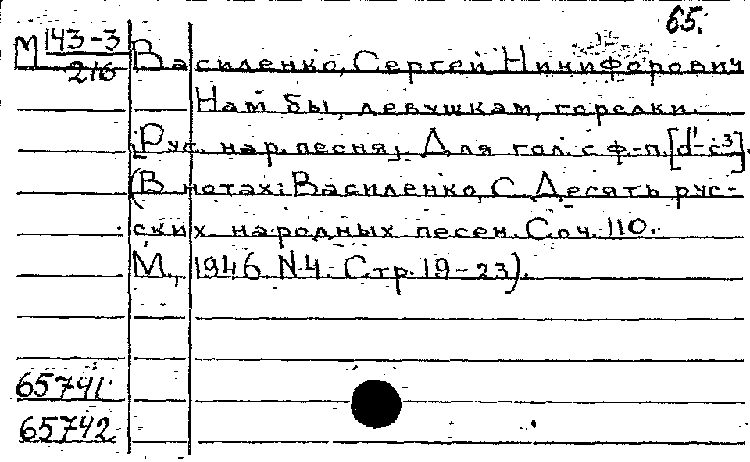 65.
М 143-3/216 Василенко, Сергей Никифорович
Нам бы, девушкам, горелки.
[Рус. нар. песня]. Для гол. с ф-п. [d¹-c³].
(В нотах: Василенко, С. Десять рус-
ских народных песен. Соч. 110.
М., 1946. N.4. Стр. 19-23).
65741
65742